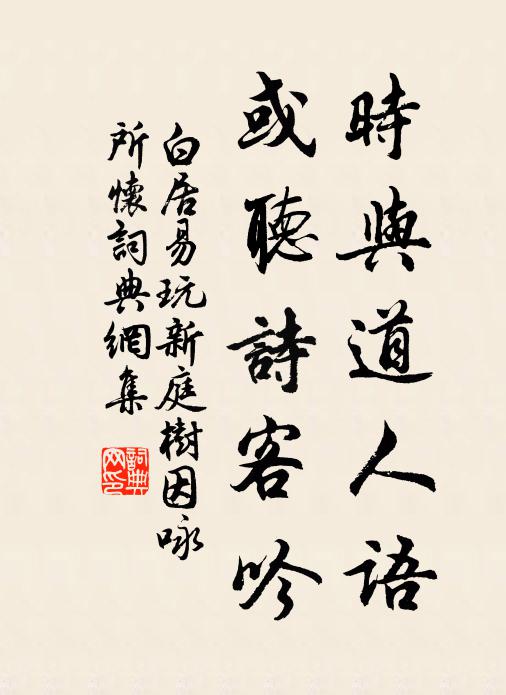 時與道人語
或聽詩客吟
白居易玩新庭樹因咏
所懷詞典網集
詞典网印